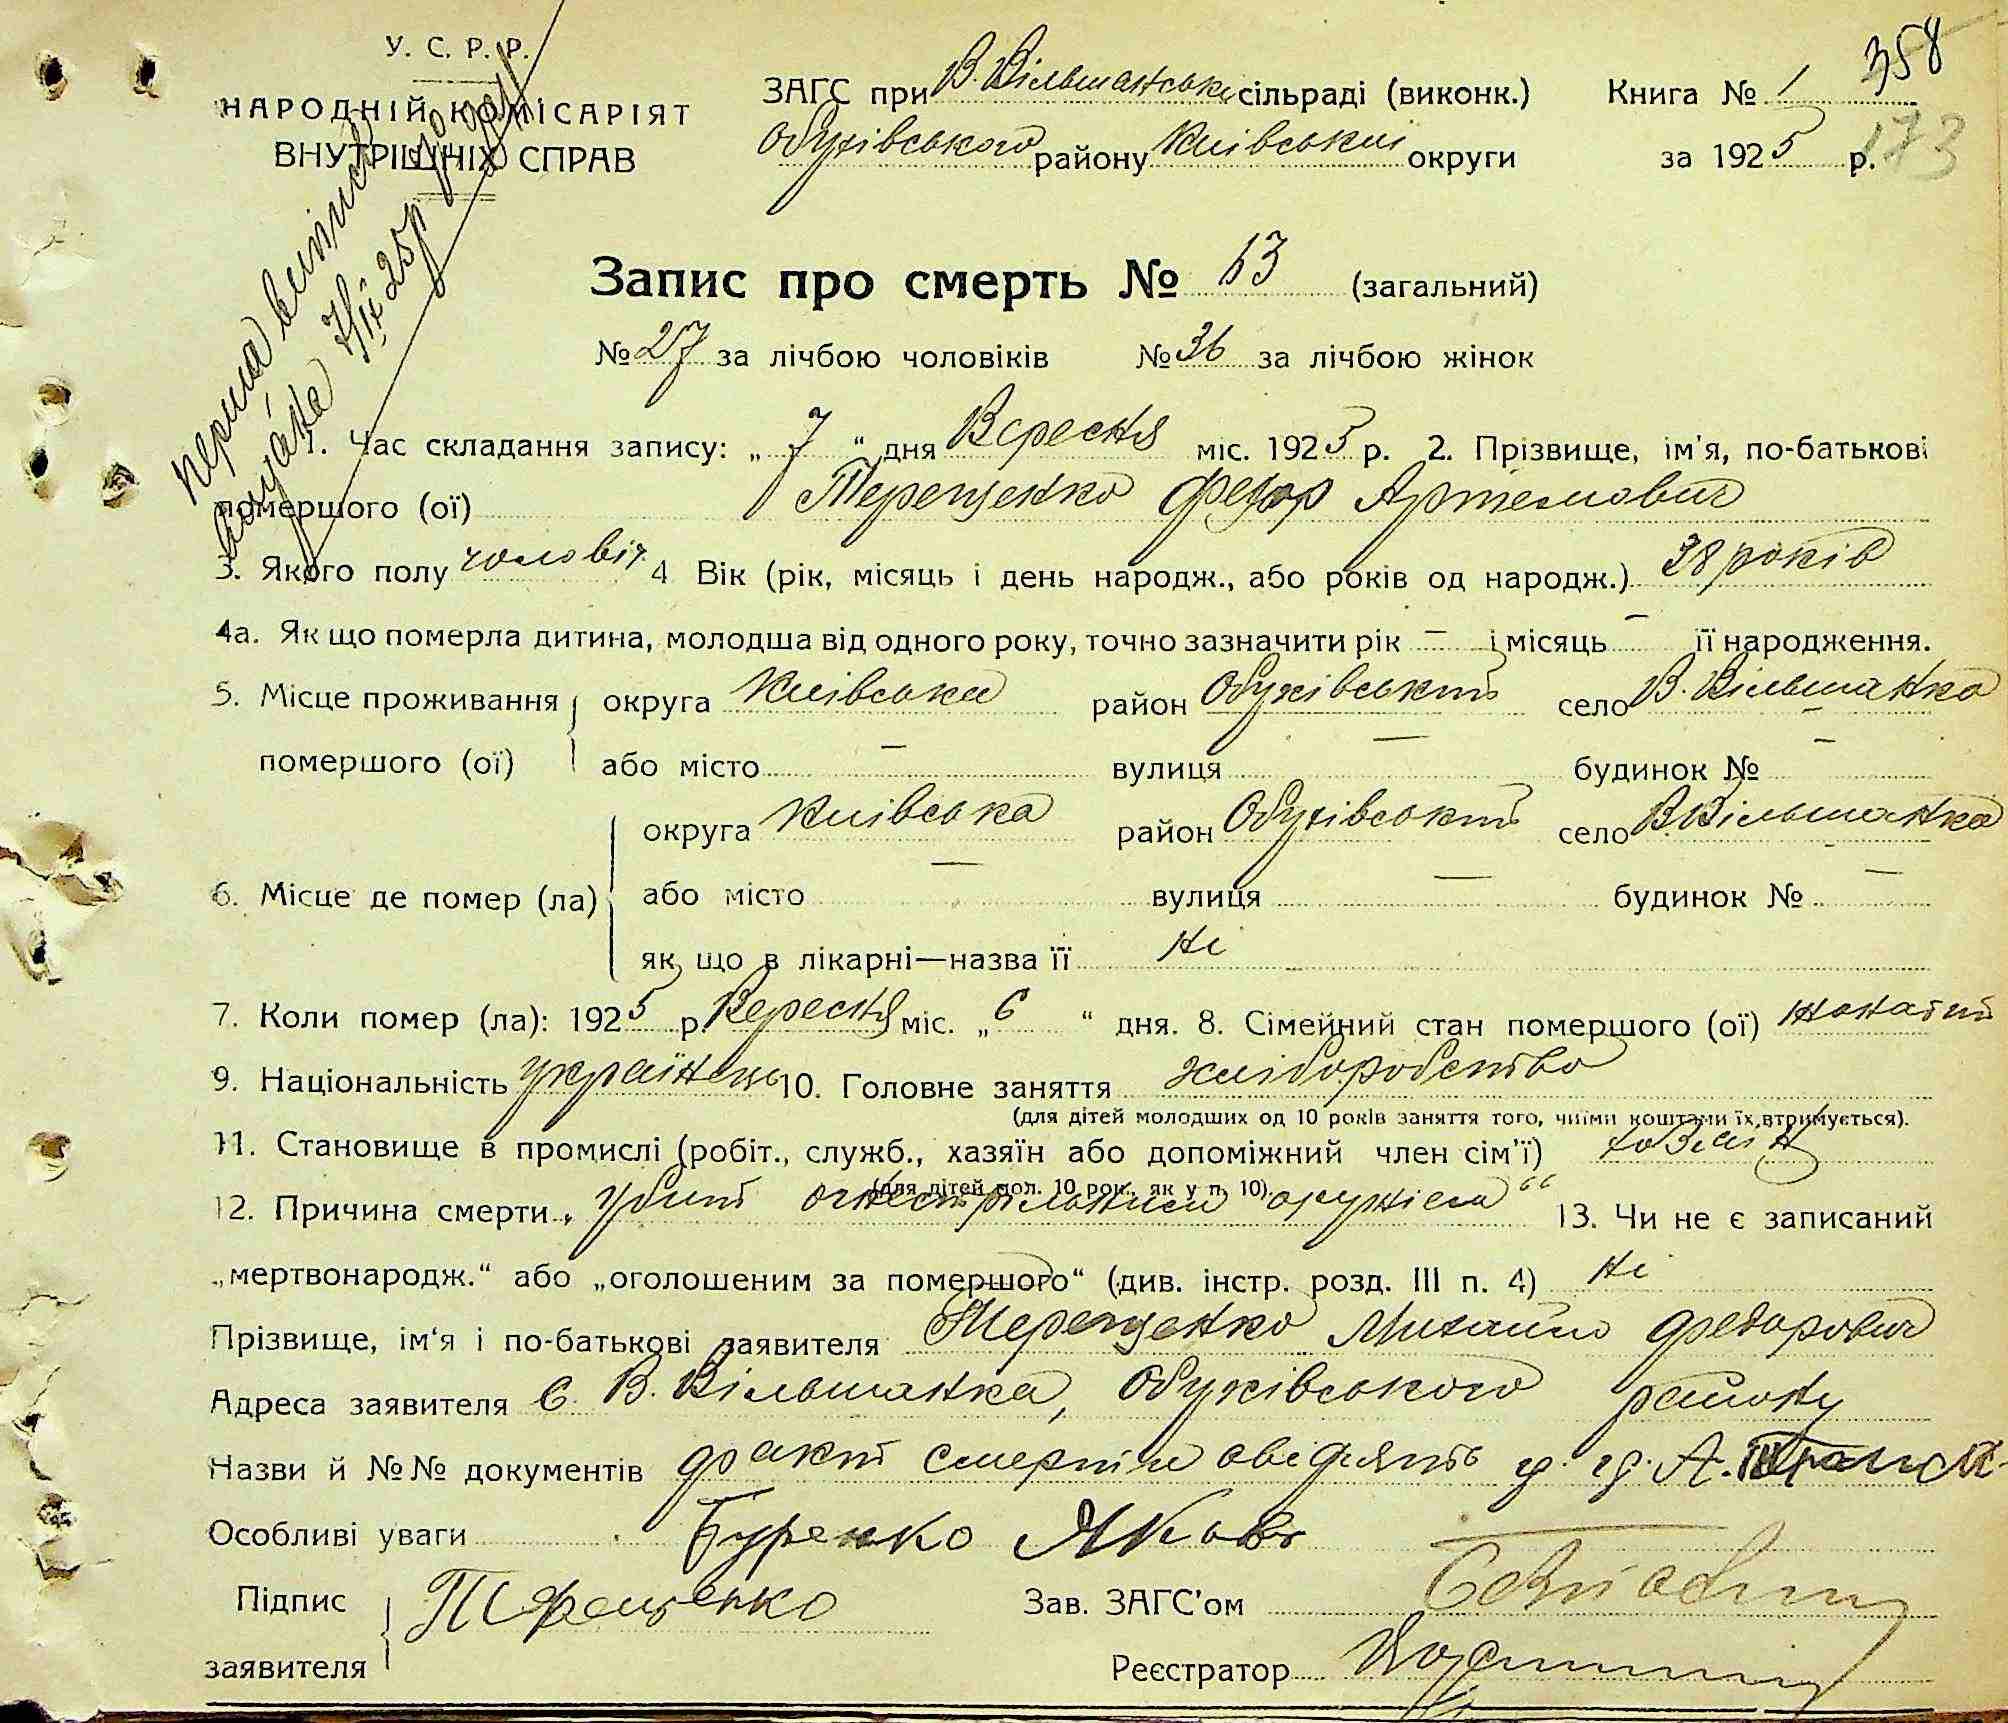 358
У. С. Р. Р.
НАРОДНІЙ КОМІСАРІЯТ
ВНУТРІШНІХ СПРАВ
ЗАГС при В. Вільшанській сільраді (виконк.) Книга № 1
Обухівського району Київської округи за 1925 р. 173
перша виписка
видана 7/ІХ 25р
Запис про смерть № 63 (загальний)
№ 27 за лічбою чоловіків № 36 за лічбою жінок
1. Час складання запису: „ 7 “ дня Вересня міс. 1925 р. 2. Прізвище, ім'я, по-батькові
помершого (ої) Терещенко Федор Артемович
3. Якого полу чоловіч. 4 Вік (рік, місяць і день народж., або років од народж.) 38 років
4а. Як що померла дитина, молодша від одного року, точно зазначити рік — і місяць — її народження.
5. Місце проживання округа Київська район Обухівський село В. Вільшанка
помершого (ої) або місто — вулиця — будинок № —
округа Київська район Обухівський село В. Вільшанка
6. Місце де помер (ла) або місто — вулиця — будинок № —
як що в лікарні—назва її Ні
7. Коли помер (ла): 1925 р. Вересня міс. „ 6 “ дня. 8. Сімейний стан помершого (ої) жонатий
9. Національність українець 10. Головне заняття хліборобство
(для дітей молодших од 10 років заняття того, чиїми коштами їх втримується).
11. Становище в промислі (робіт., служб., хазяїн або допоміжний член сім'ї) хозяїн
(для дітей мол. 10 рок., як у п. 10).
12. Причина смерти „ Убит огнестрільним оружієм “ 13. Чи не є записаний
„мертвонародж.“ або „оголошеним за помершого“ (див. інстр. розд. III п. 4) Ні
Прізвище, ім'я і по-батькові заявителя Терещенко Михайло Федорович
Адреса заявителя с. В. Вільшанка, Обухівського району
Назви й №№ документів факт смерті гр. гр. А.
Особливі уваги Буренко Яков
Підпис Терещенко Зав. ЗАГС'ом
заявителя Реєстратор